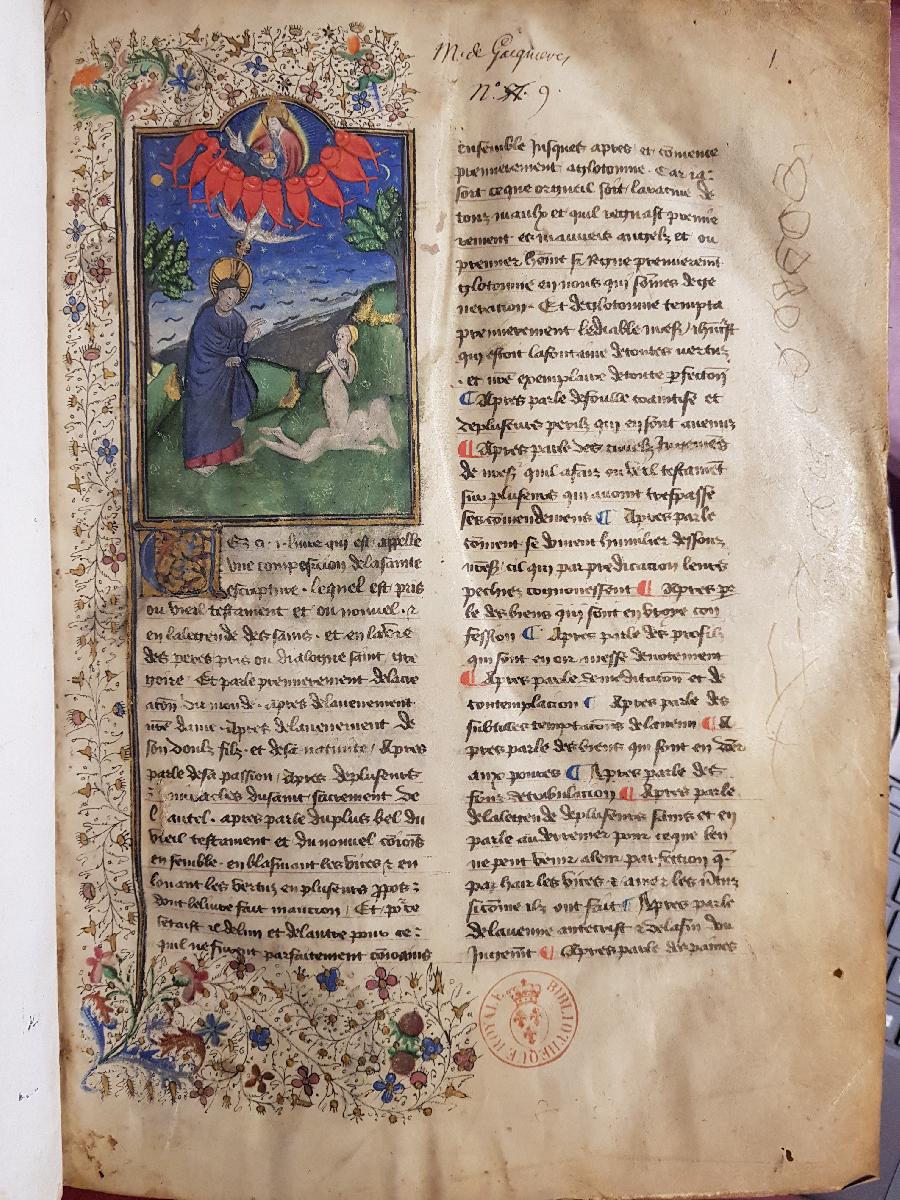 M. de Gaignieres
1
n° 9.
Ez ci .i. livre qui est appelle
vne compilacion de la sainte
escripture . lequel est pris
ou vieil testament et ou nouuel . et
en la legende des sains . et en la vie
des peres pris ou dialogue saint gre
goire . Et parle premierement de la cre
acion du monde . apres de lauenement
nostre dame . Apres de lauenement de
son doulz filz . et de sa natiuite / Apres
parle de sa passion / Apres de pluseurs
miracles du saint sacrement de
lautel . apres parle du plus bel du
vieil testament et du nouuel
en semble . en blasmant les vices et en
louant les vertuz en pluseurs
dont le liure fait mancion / Et
et de lun et de lautre pour ce
quil ne furent parfaitement
ensemble Jusques apres et comence
premierement a glotonnie . Car ia
soit ce que orgueil soit la racine de
touz maulx et quil regnast premie
rement es mauueis angelz et ou
premier home si Regne premierement
glotonnie en nous qui somes de ge
neracion . Et de glotonnie tempta
premierement le diable
qui estoit la fontaine de toutes vertuz
. et exemplaire de toute perfection
Apres parle de foulle couuoitise et
de pluseurs perilz qui en sont auenuz
Apres parle des cruelz Jugemens
de quil a faiz ou vieil testament
sur pluseurs qui auoient trespasse
ses comendemens Apres parle
coment se doiuent humilier dessouz
cil qui par predicacion leurs
pechiez congnoissent Apres par
le des biens qui sont en vroye con
fession Apres parle des profiz
qui sont en oir messe deuotement
Apres parle de meditacion et de
contemplacion Apres parle des
subtilles temptacions de lanemi A
pres parle des biens qui sont en
aux poures Apres parle des
de tribulacion Apres parle
de la legende de pluseurs sains et en
parle au derrenier pour ce que len
ne peut venir a leur perfection que
par hair les vices et amer les vertuz
si come ilz ont fait Apres parle
de lauenue antecrist et de la fin du
Jugement Apres parle des paines
BIBLIOTHEQUE ROYALE